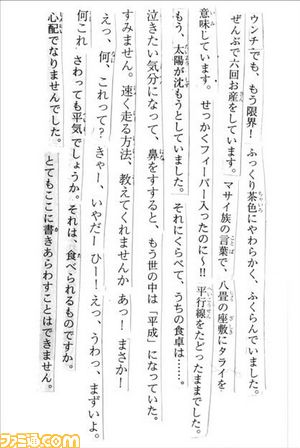 ウンチでも、もう限界！　ふっくり茶色にやわらかく、ふくらんでいました。
ぜんぶで六回お産をしています。マサイ族の言葉で、八畳の座敷にタライを
意味しています。せっかくフィーバー入ったのに～!!　平行線をたどったままでした。
もう、太陽が沈もうとしていました。それにくらべて、うちの食卓は……。
泣きたい気分になって、鼻をすすると、もう世の中は「平成」になっていた。
すみません。速く走る方法、教えてくれませんか　あっ！　まさか！
えっ、何、これって？　きゃー、いやだー　ひー！　えっ、うわっ、まずいよ。
何これ　さわっても平気でしょうか。それは、食べられるものですか。
心配でなりませんでした。　とてもここに書きあらわすことはできません。
ファミ通.com